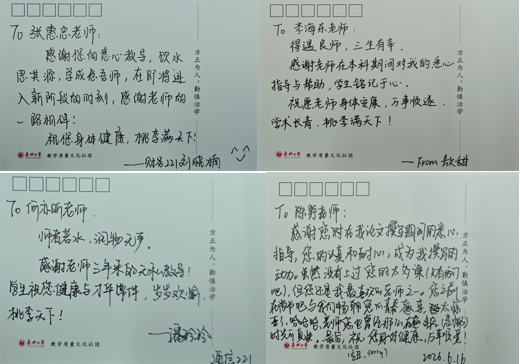 To 张惠忠老师:
感谢您的悉心教导,饮水
思其源,学成念吾师,在即将进
入新阶段的时刻,感谢老师的
一路相伴!
祝您身体健康,桃李满天下!
——财务221刘晓楠
方正为人,勤慎治学
教学质量文化社团
To 李海东老师:
得遇良师,三生有幸。
感谢老师在本科期间对我的悉心
指导与帮助,学生铭记于心。
祝愿老师身体安康,万事顺遂,
学术长青,桃李满天下!
—From 敖甜
方正为人,勤慎治学
教学质量文化社团
To 何亦昕老师,
师者若水,润物无声。
感谢老师三年来的无私教导!
学生祝您健康与才华常伴,岁岁欢愉,
桃李天下!
——潘玲玲
通信221
方正为人,勤慎治学
教学质量文化社团
To 陈野老师:
感谢您对在我论文撰写期间的悉心
指导,您的认真和耐心,成为我撰写的
动力。虽然没有上过您的大约课
但您还是我最喜欢的老师之一。
哈哈哈,
最后,祝您身体健康,万事顺意!
2026.1.16
方正为人,勤慎治学